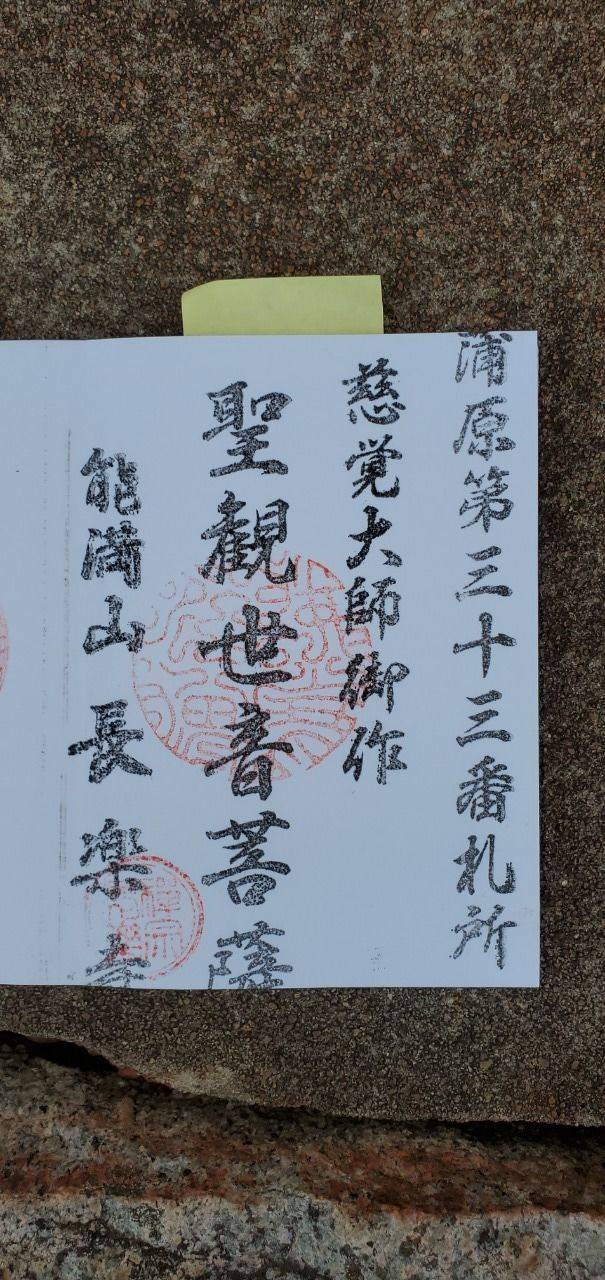 蒲原第三十三番札所
慈覚大師御作
聖觀世音菩薩
能満山長楽寺